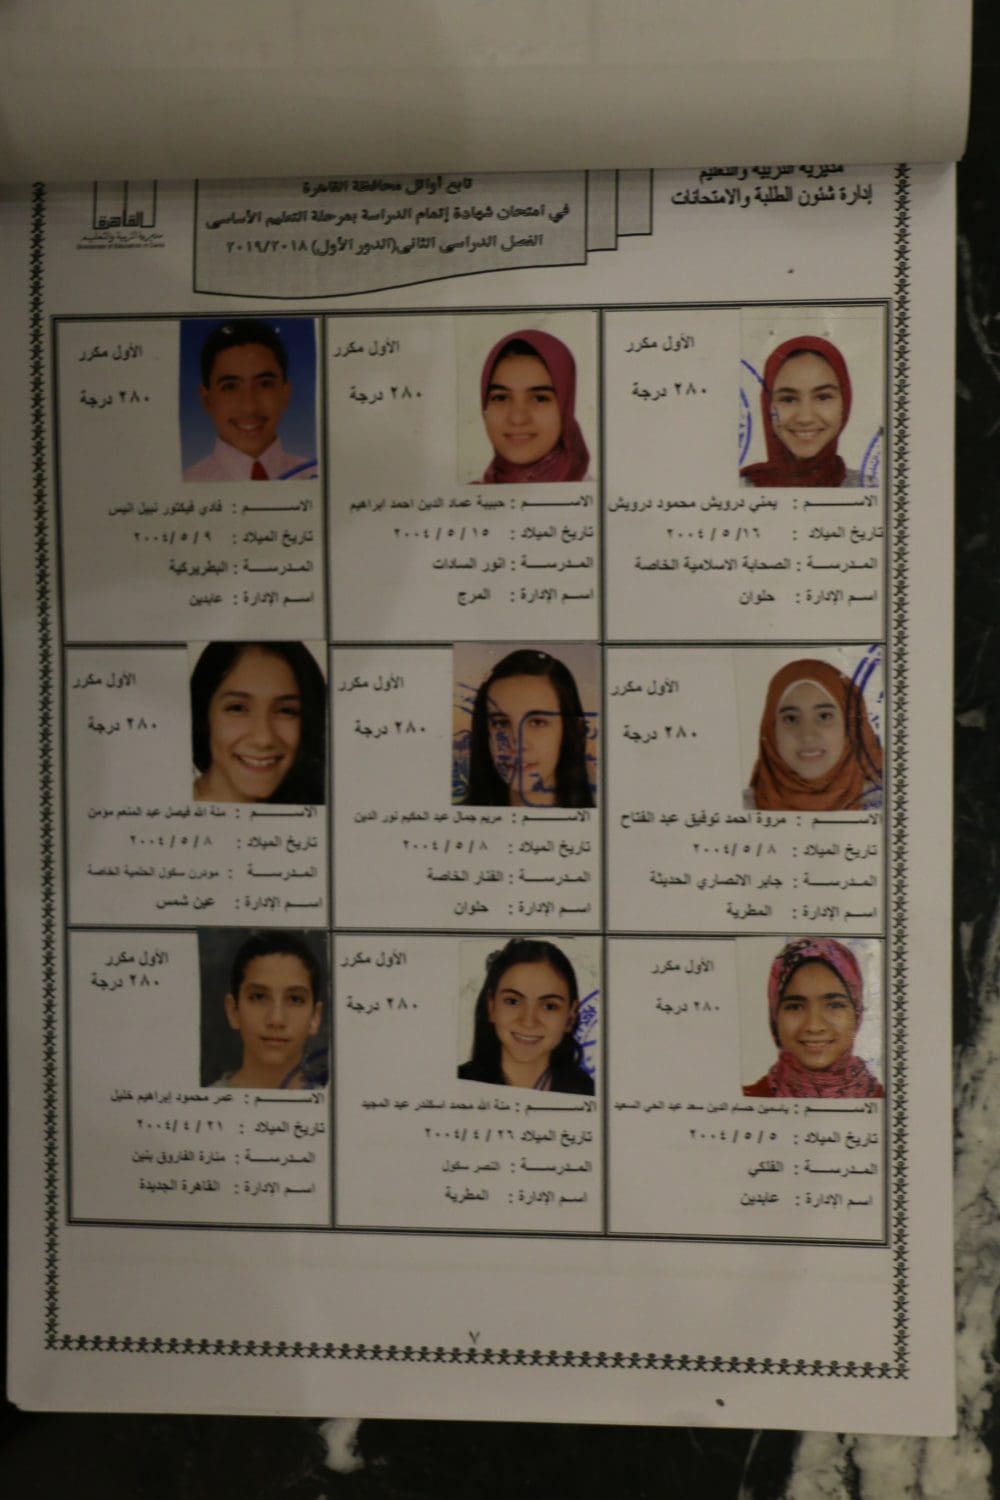 مديرية التربية والتعليم
إدارة شئون الطلبة والامتحانات
تابع أوائل محافظة القاهرة
في امتحان شهادة إتمام الدراسة بمرحلة التعليم الأساسى
الفصل الدراسى الثانى (الدور الأول) ٢٠١٩/٢٠١٨
القاهرة
مديرية التربية والتعليم
Directorate of Education in Cairo
الأول مكرر
٢٨٠ درجة
الاســـــم : يمني درويش محمود درويش
تاريخ الميلاد : ١٦/ ٥ / ٢٠٠٤
المدرســـة : الصحابة الاسلامية الخاصة
اسـم الإدارة : حلوان
الأول مكرر
٢٨٠ درجة
الاســـــم : حبيبة عماد الدين احمد ابراهيم
تاريخ الميلاد : ١٥ / ٥ / ٢٠٠٤
المدرســـة : انور السادات
اسـم الإدارة : المرج
الأول مكرر
٢٨٠ درجة
الاســـــم : فادي فيكتور نبيل انيس
تاريخ الميلاد : ٩ / ٥ /٢٠٠٤
المدرســـة : البطريركية
اسـم الإدارة : عابدين
الأول مكرر
٢٨٠ درجة
الاســـــم : مروة احمد توفيق عبد الفتاح
تاريخ الميلاد : ٨ / ٥ /٢٠٠٤
المدرســـة : جابر الانصاري الحديثة
اسـم الإدارة : المطرية
الأول مكرر
٢٨٠ درجة
الاســـــم : مريم جمال عبد الحكيم نور الدين
تاريخ الميلاد : ٨ / ٥ / ٢٠٠٤
المدرســـة : الفنار الخاصة
اسـم الإدارة : حلوان
الأول مكرر
٢٨٠ درجة
الاســـــم : منة الله فيصل عبد المنعم مؤمن
تاريخ الميلاد : ٨ / ٥ / ٢٠٠٤
المدرســـة : مودرن سكول الحلمية الخاصة
اسـم الإدارة : عين شمس
الأول مكرر
٢٨٠ درجة
الاســـــم : ياسمين حسام الدين سعد عبد الحي السعيد
تاريخ الميلاد : ٥ / ٥ / ٢٠٠٤
المدرســـة : الفلكي
اسـم الإدارة : عابدين
الأول مكرر
٢٨٠ درجة
الاســـــم : منة الله محمد اسكندر عبد المجيد
تاريخ الميلاد ٢٦ / ٤ /٢٠٠٤
المدرســـة : النصر سكول
اسـم الإدارة : المطرية
الأول مكرر
٢٨٠ درجة
الاســـــم : عمر محمود إبراهيم خليل
تاريخ الميلاد : ٢١ / ٤ /٢٠٠٤
المدرســـة : منارة الفاروق بنين
اسـم الإدارة : القاهرة الجديدة
٧